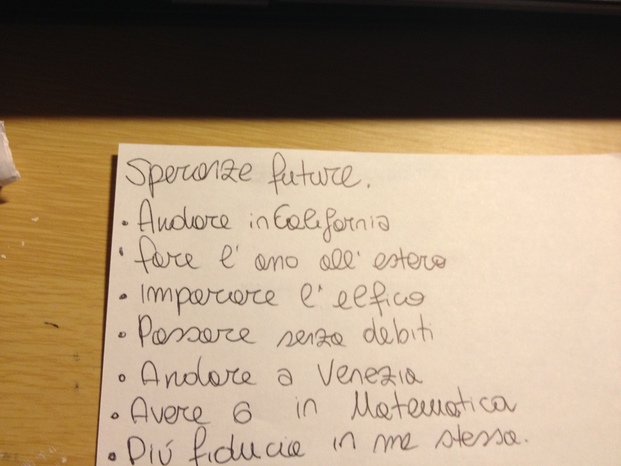 Speranze future.
• Andare in California
• fare l' ano all' estero
• Imparare l' elfico
• Passare senza debiti
• Andare a Venezia
• Avere 6 in Matematica
• Più fiducia in me stessa.